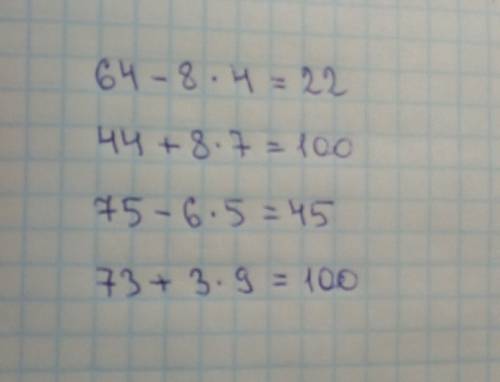 64 - 8 · 4 = 22
44 + 8 · 7 = 100
75 - 6 · 5 = 45
73 + 3 · 9 = 100